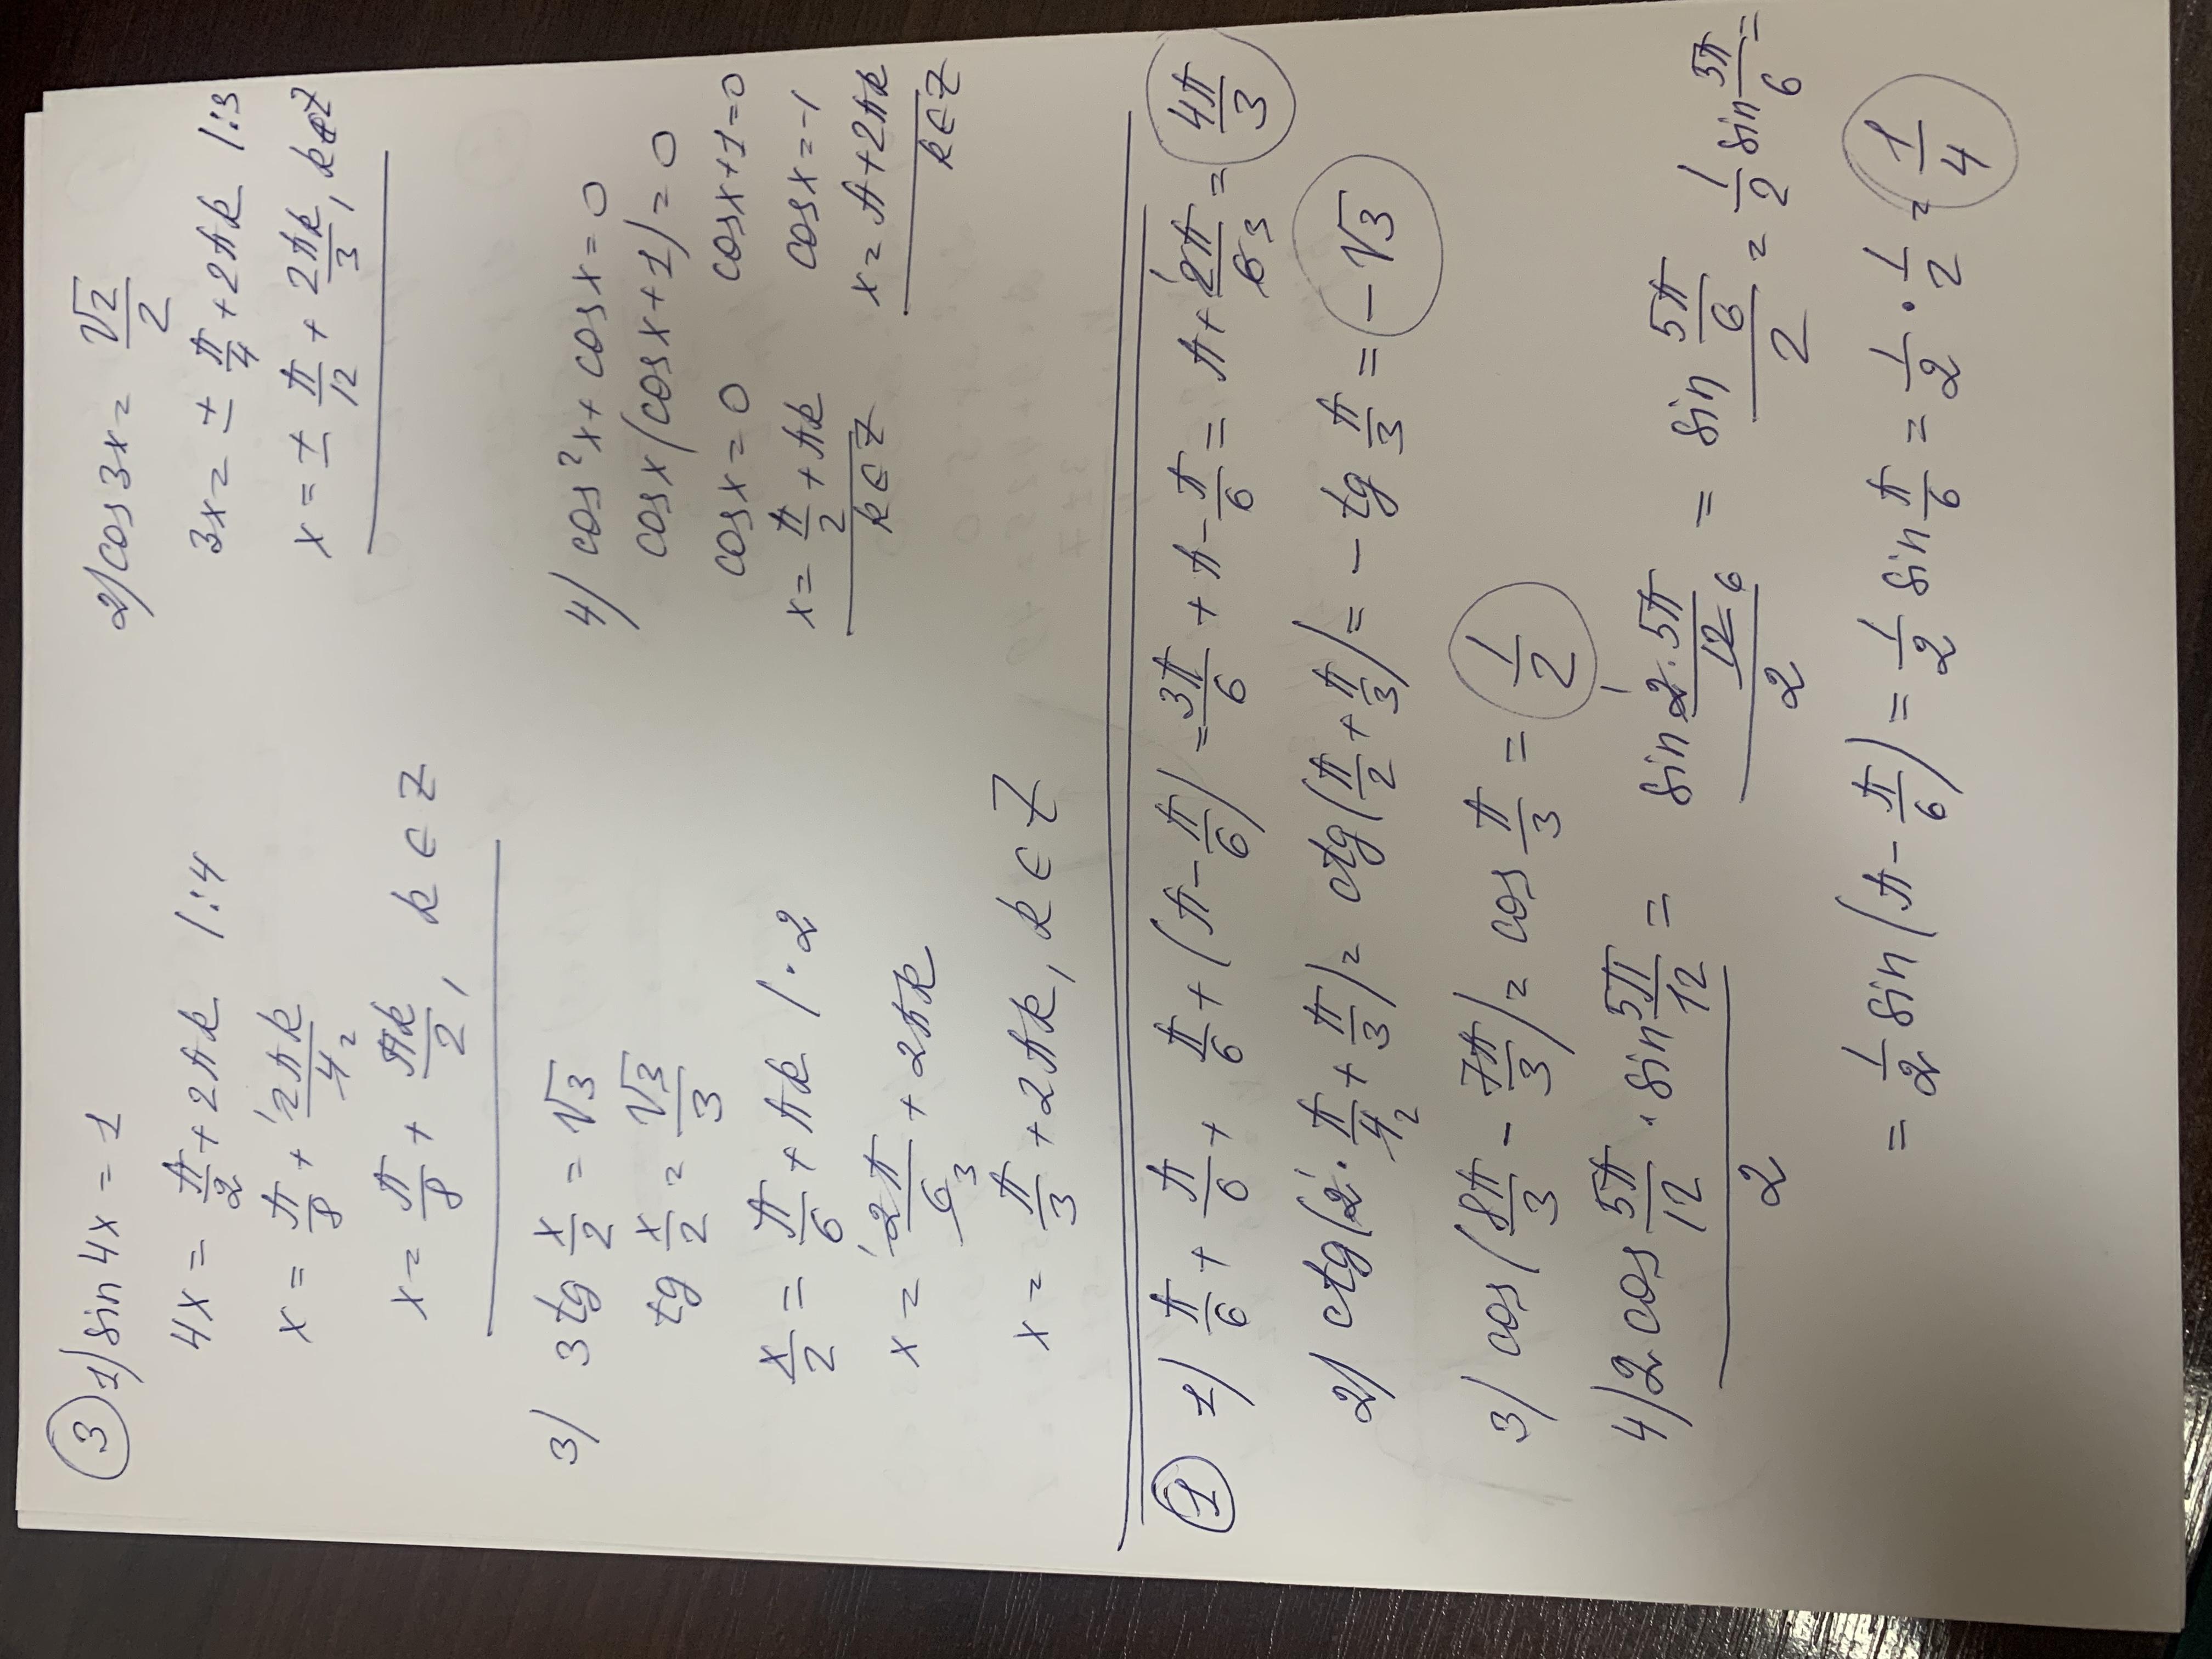 ③ 1) sin 4x = 1
4x = π/2 + 2πk | :4
x = π/8 + 2πk/4 2
x = π/8 + πk/2, k ∈ Z
2) cos 3x = √2/2
3x = ± π/4 + 2πk | :3
x = ± π/12 + 2πk/3, k ∈ Z
3) 3 tg x/2 = √3
tg x/2 = √3/3
x/2 = π/6 + πk | · 2
x = 2π/6 3 + 2πk
x = π/3 + 2πk, k ∈ Z
4) cos²x + cos x = 0
cos x (cos x + 1) = 0
cos x = 0 cos x + 1 = 0
x = π/2 + πk cos x = -1
k ∈ Z x = π + 2πk
k ∈ Z
① 1) π/6 + π/6 + π/6 + (π - π/6) = 3π/6 + π - π/6 = π + 2π/6 3 = 4π/3
2) ctg (2 · π/4 2 + π/3) = ctg (π/2 + π/3) = - tg π/3 = - √3
3) cos (8π/3 - 7π/3) = cos π/3 = 1/2
4) 2 cos 5π/12 · sin 5π/12 / 2 = sin 2 · 5π/12 6 / 2 = sin 5π/6 / 2 = 1/2 sin 5π/6 =
= 1/2 sin (π - π/6) = 1/2 sin π/6 = 1/2 · 1/2 = 1/4